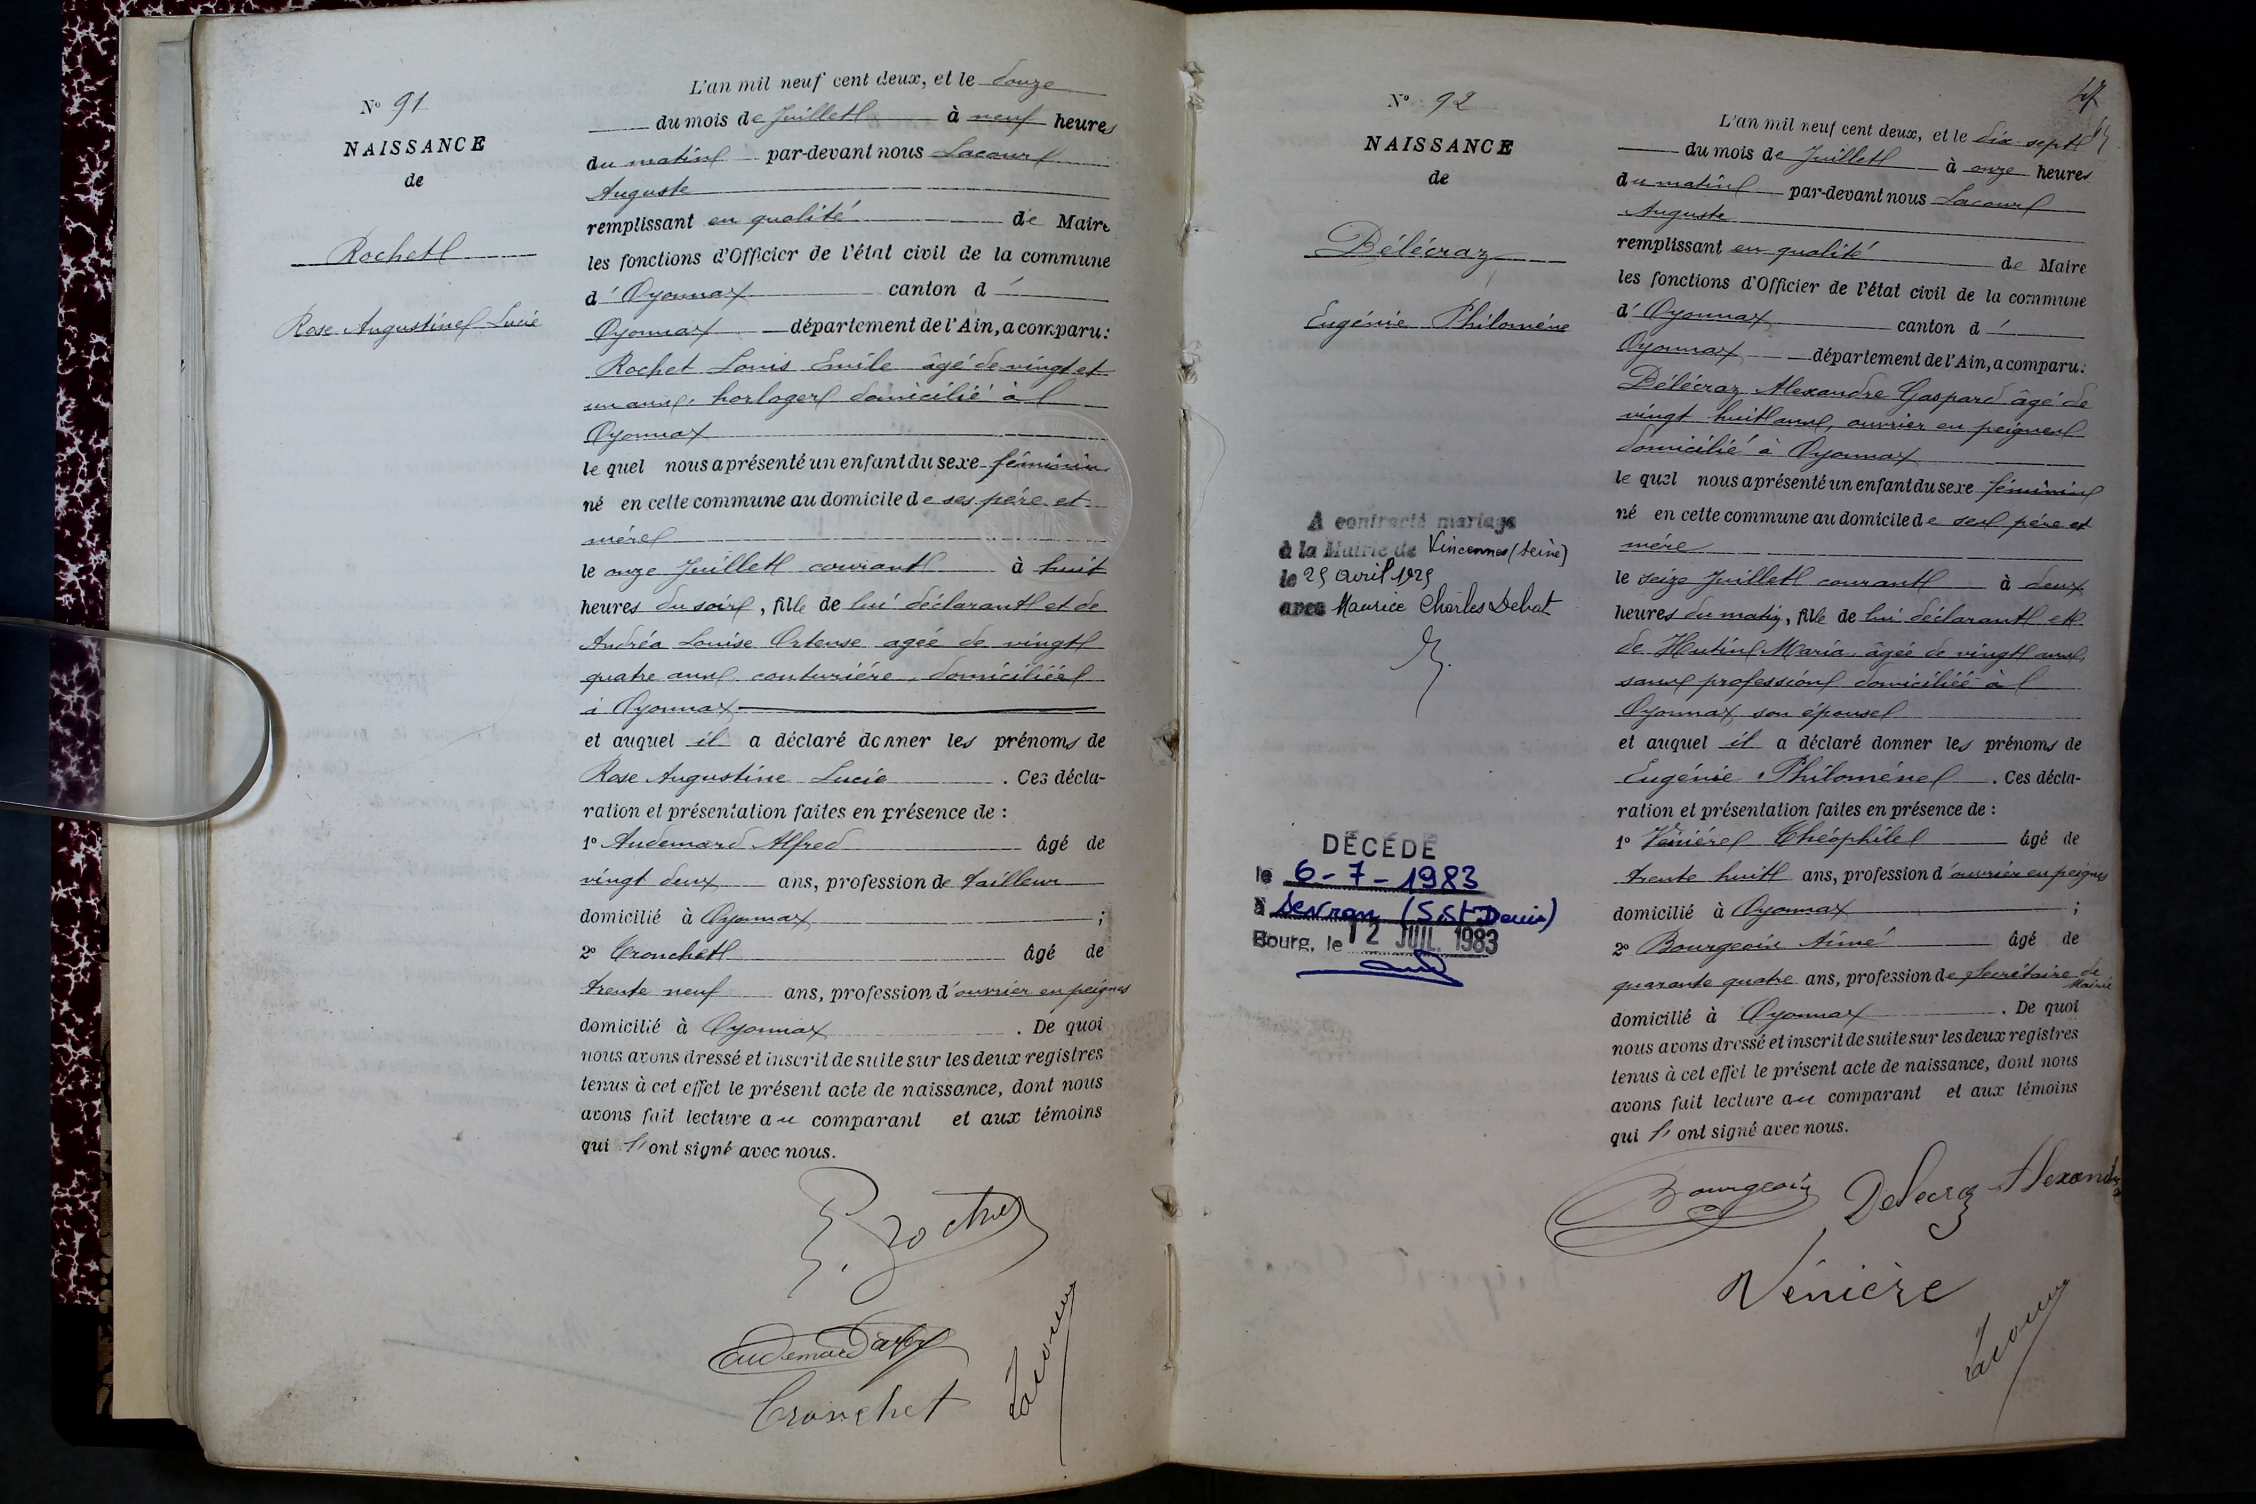 N° 91
NAISSANCE
de
Rochet
Rose Augustine Lucie
L'an mil neuf cent deux, et le douze
du mois de Juillet à neuf heures
du matin par-devant nous Lacour
Auguste
remplissant en qualité de Maire
les fonctions d'Officier de l'état civil de la commune
d'Oyonnax canton d'
Oyonnax département de l'Ain, a comparu:
Rochet Louis Emile âgé de vingt et
un ans, horloger domicilié à
Oyonnax
le quel nous a présenté un enfant du sexe féminin
né en cette commune au domicile de ses père et
mère
le onze Juillet courant à huit
heures du soir, fille de lui déclarant et de
Andréa Louise Ortense agée de vingt
quatre ans couturière, domiciliée
à Oyonnax
et auquel il a déclaré donner les prénoms de
Rose Augustine Lucie. Ces décla-
ration et présentation faites en présence de :
1° Audemard Alfred âgé de
vingt deux ans, profession de tailleur
domicilié à Oyonnax ;
2° Cronchet âgé de
trente neuf ans, profession d'ouvrier en peignes
domicilié à Oyonnax. De quoi
nous avons dressé et inscrit de suite sur les deux registres
tenus à cet effet le présent acte de naissance, dont nous
avons fait lecture au comparant et aux témoins
qui l'ont signé avec nous.
E. Rochet
Cronchet
Lacour
47
N° 92
NAISSANCE
de
Délécraz
Eugénie Philomène
A contracté mariage
à la Mairie de Vincennes (Seine)
le 25 avril 1925
avec Maurice Charles Debat
DÉCÉDÉ
le 6-7-1983
à Sevran (S. St-Denis)
Bourg, le 12 JUIL. 1983
L'an mil neuf cent deux, et le dix-sept
du mois de Juillet à onze heures
du matin par-devant nous Lacour
Auguste
remplissant en qualité de Maire
les fonctions d'Officier de l'état civil de la commune
d'Oyonnax canton d'
Oyonnax département de l'Ain, a comparu:
Délécraz Alexandre Gaspard âgé de
vingt huit ans, ouvrier en peignes
domicilié à Oyonnax
le quel nous a présenté un enfant du sexe féminin
né en cette commune au domicile de ses père et
mère
le seize Juillet courant à deux
heures du matin, fille de lui déclarant et
de Hutin Maria âgée de vingt ans,
sans profession domiciliée à
Oyonnax son épouse
et auquel il a déclaré donner les prénoms de
Eugénie Philomène. Ces décla-
ration et présentation faites en présence de :
1° Vénière Théophile âgé de
trente huit ans, profession d'ouvrier en peignes
domicilié à Oyonnax ;
2° Bourgeois Aimé âgé de
quarante quatre ans, profession de Secrétaire de
Mairie
domicilié à Oyonnax. De quoi
nous avons dressé et inscrit de suite sur les deux registres
tenus à cet effet le présent acte de naissance, dont nous
avons fait lecture au comparant et aux témoins
qui l'ont signé avec nous.
Bourgeois Delecraz Alexandre
Vénière
Lacour